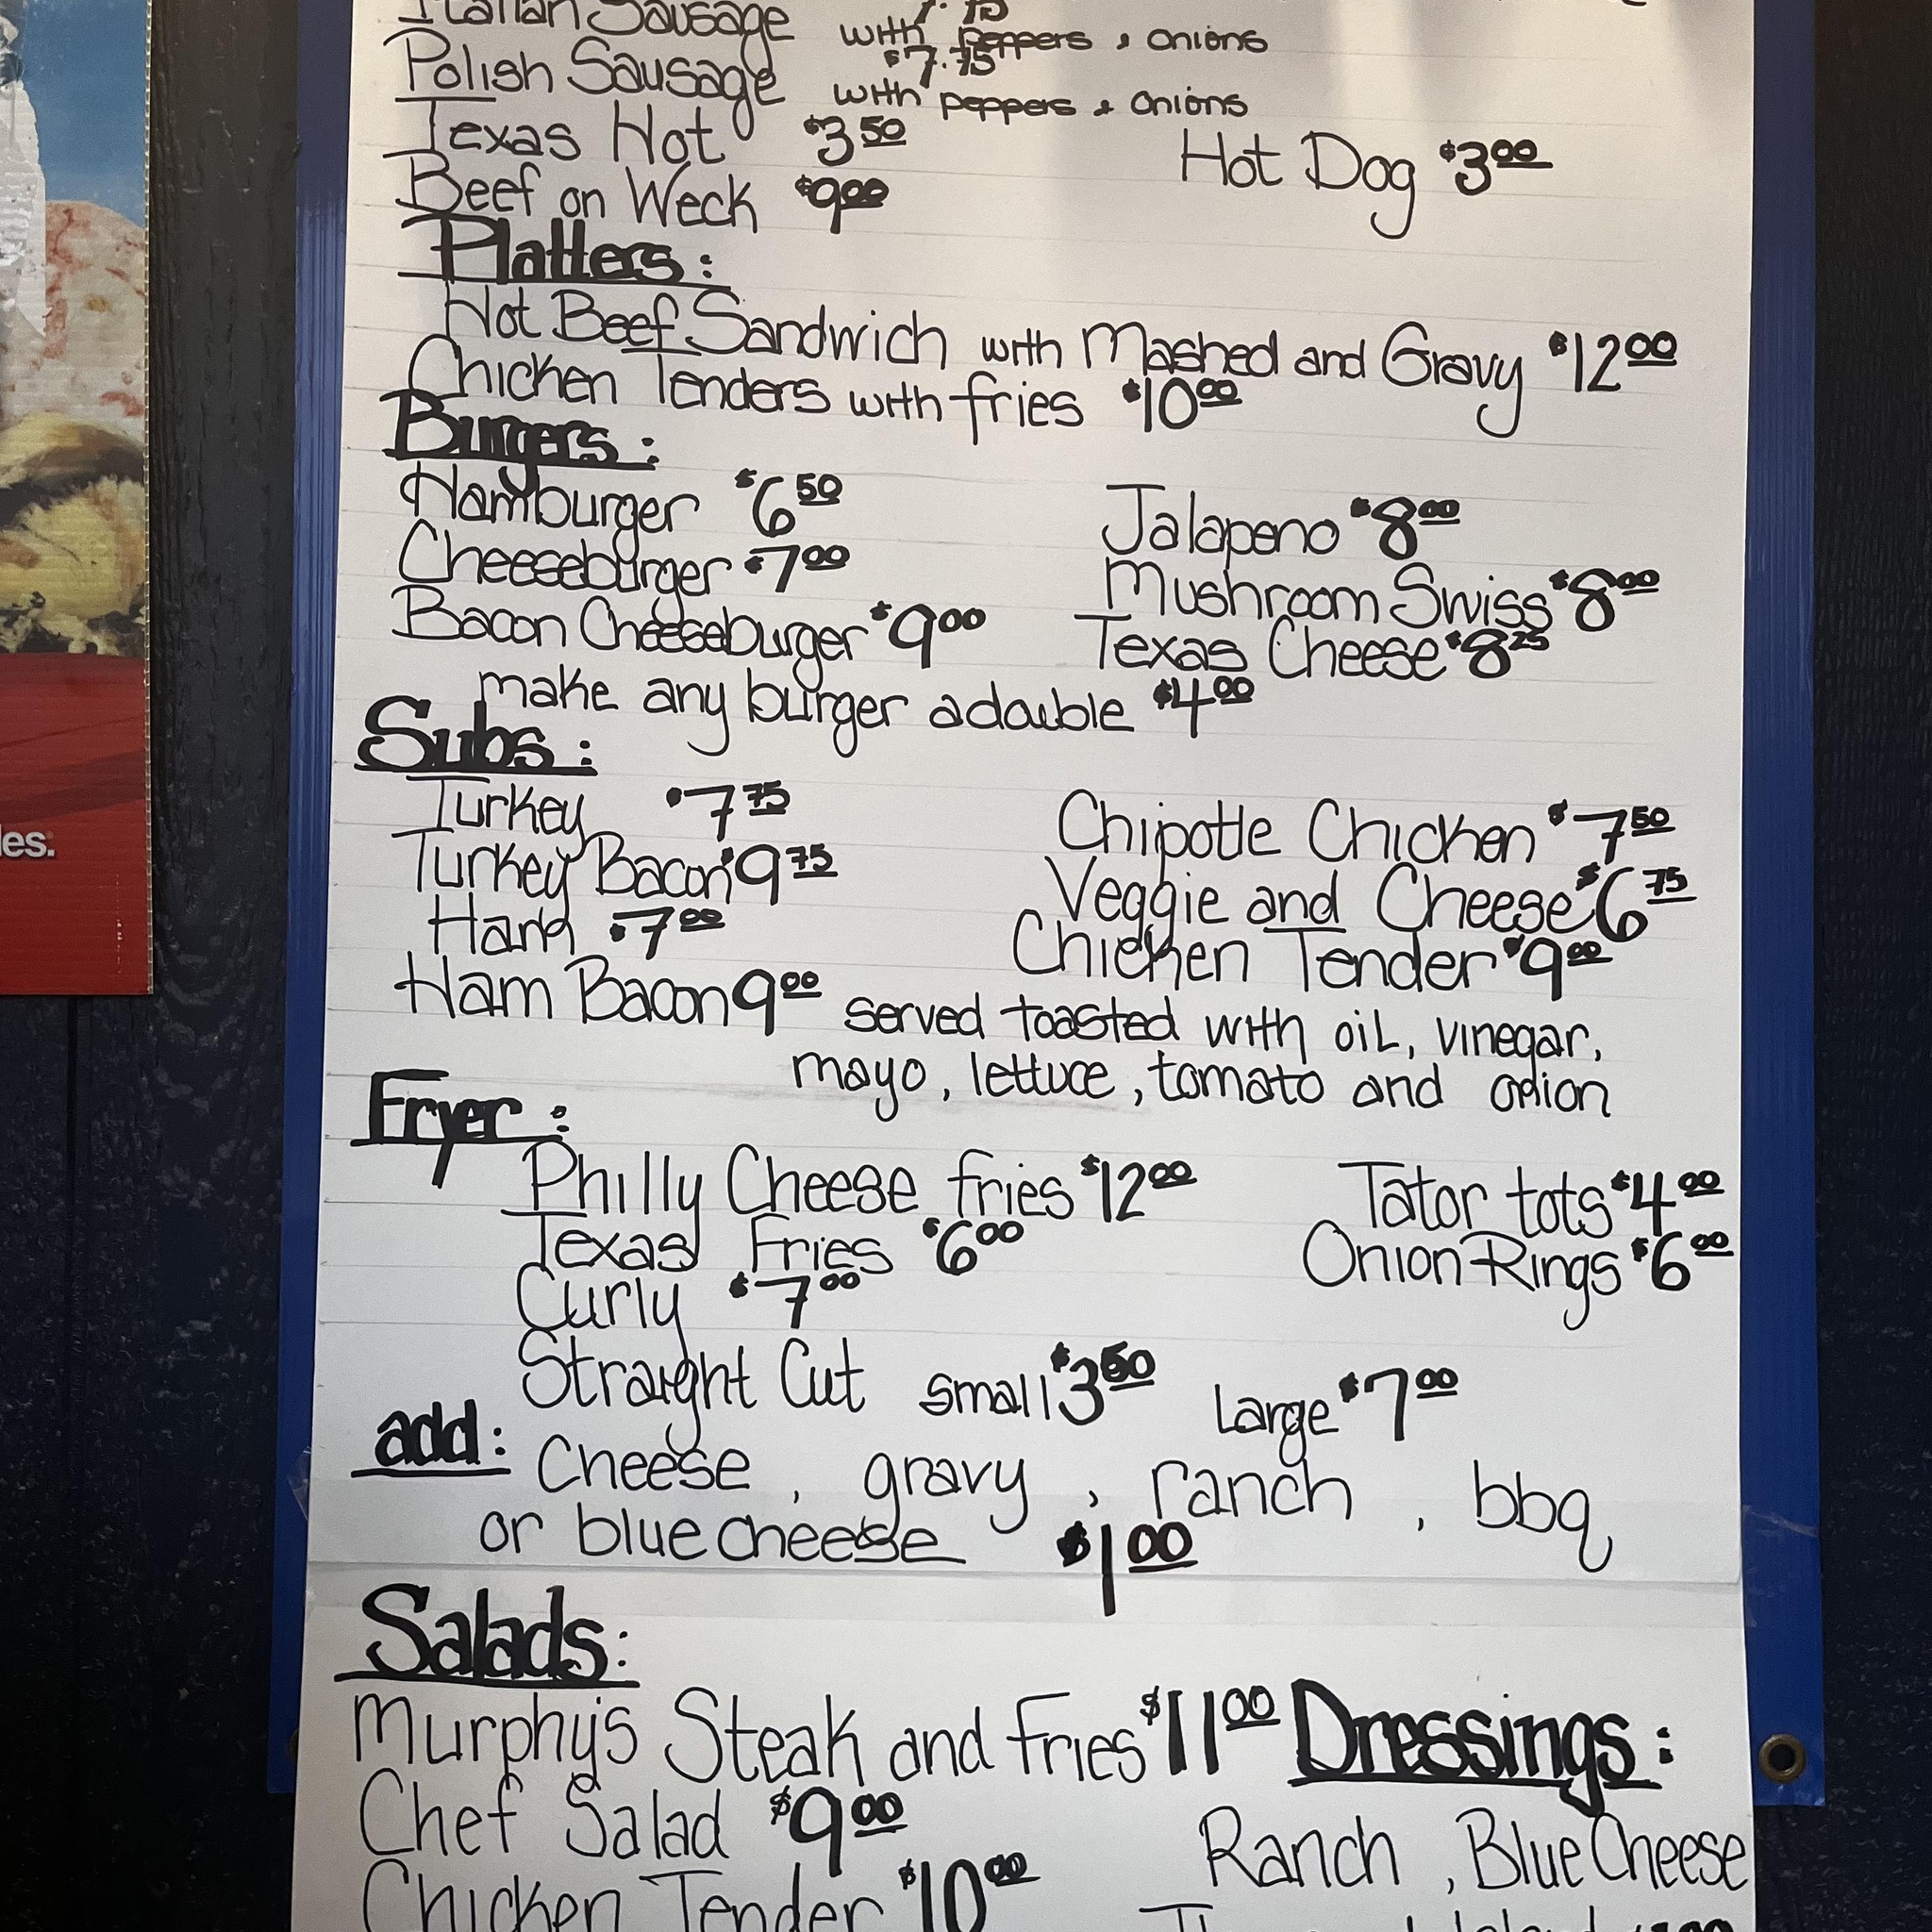 les.
Italian Sausage with peppers & onions
Polish Sausage $7.75 with peppers & onions
Texas Hot $3.50 Hot Dog $3.00
Beef on Weck $9.00
Platters:
Hot Beef Sandwich with Mashed and Gravy $12.00
Chicken Tenders with fries $10.00
Burgers:
Hamburger $6.50 Jalapeno $8.00
Cheeseburger $7.00 Mushroom Swiss $8.00
Bacon Cheeseburger $9.00 Texas Cheese $8.25
make any burger a double $4.00
Subs:
Turkey $7.75 Chipotle Chicken $7.50
Turkey Bacon $9.75 Veggie and Cheese $6.75
Ham $7.00 Chicken Tender $9.00
Ham Bacon 9.00 served toasted with oil, vinegar,
mayo, lettuce, tomato and onion
Fryer:
Philly Cheese fries $12.00 Tator tots $4.00
Texas Fries $6.00 Onion Rings $6.00
Curly $7.00
Straight Cut small $3.50 Large $7.00
add: Cheese, gravy, ranch, bbq
or blue cheese $1.00
Salads:
Murphy's Steak and Fries $11.00 Dressings:
Chef Salad $9.00 Ranch, Blue Cheese
Chicken Tender $10.00